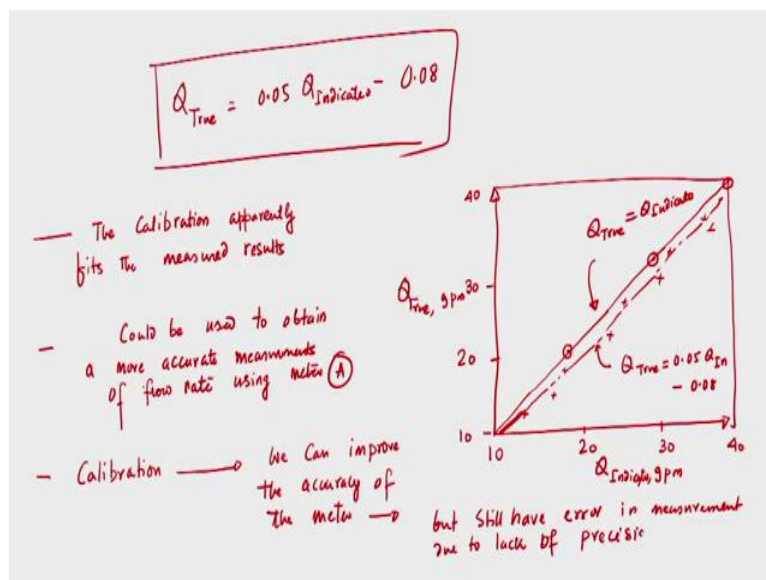 Q_True = 0.05 Q_Indicated - 0.08
— The Calibration apparently
fits the measured results
- Could be used to obtain
a more accurate measurements
of flow rate using meter A
- Calibration → We Can improve
the accuracy of
the meter → but still have error in measurement
due to lack of precisio
40
30
20
10
Q_True, gpm
Q_True = Q_Indicated
Q_True = 0.05 Q_In
- 0.08
10 20 30 40
Q_Indicate, gpm